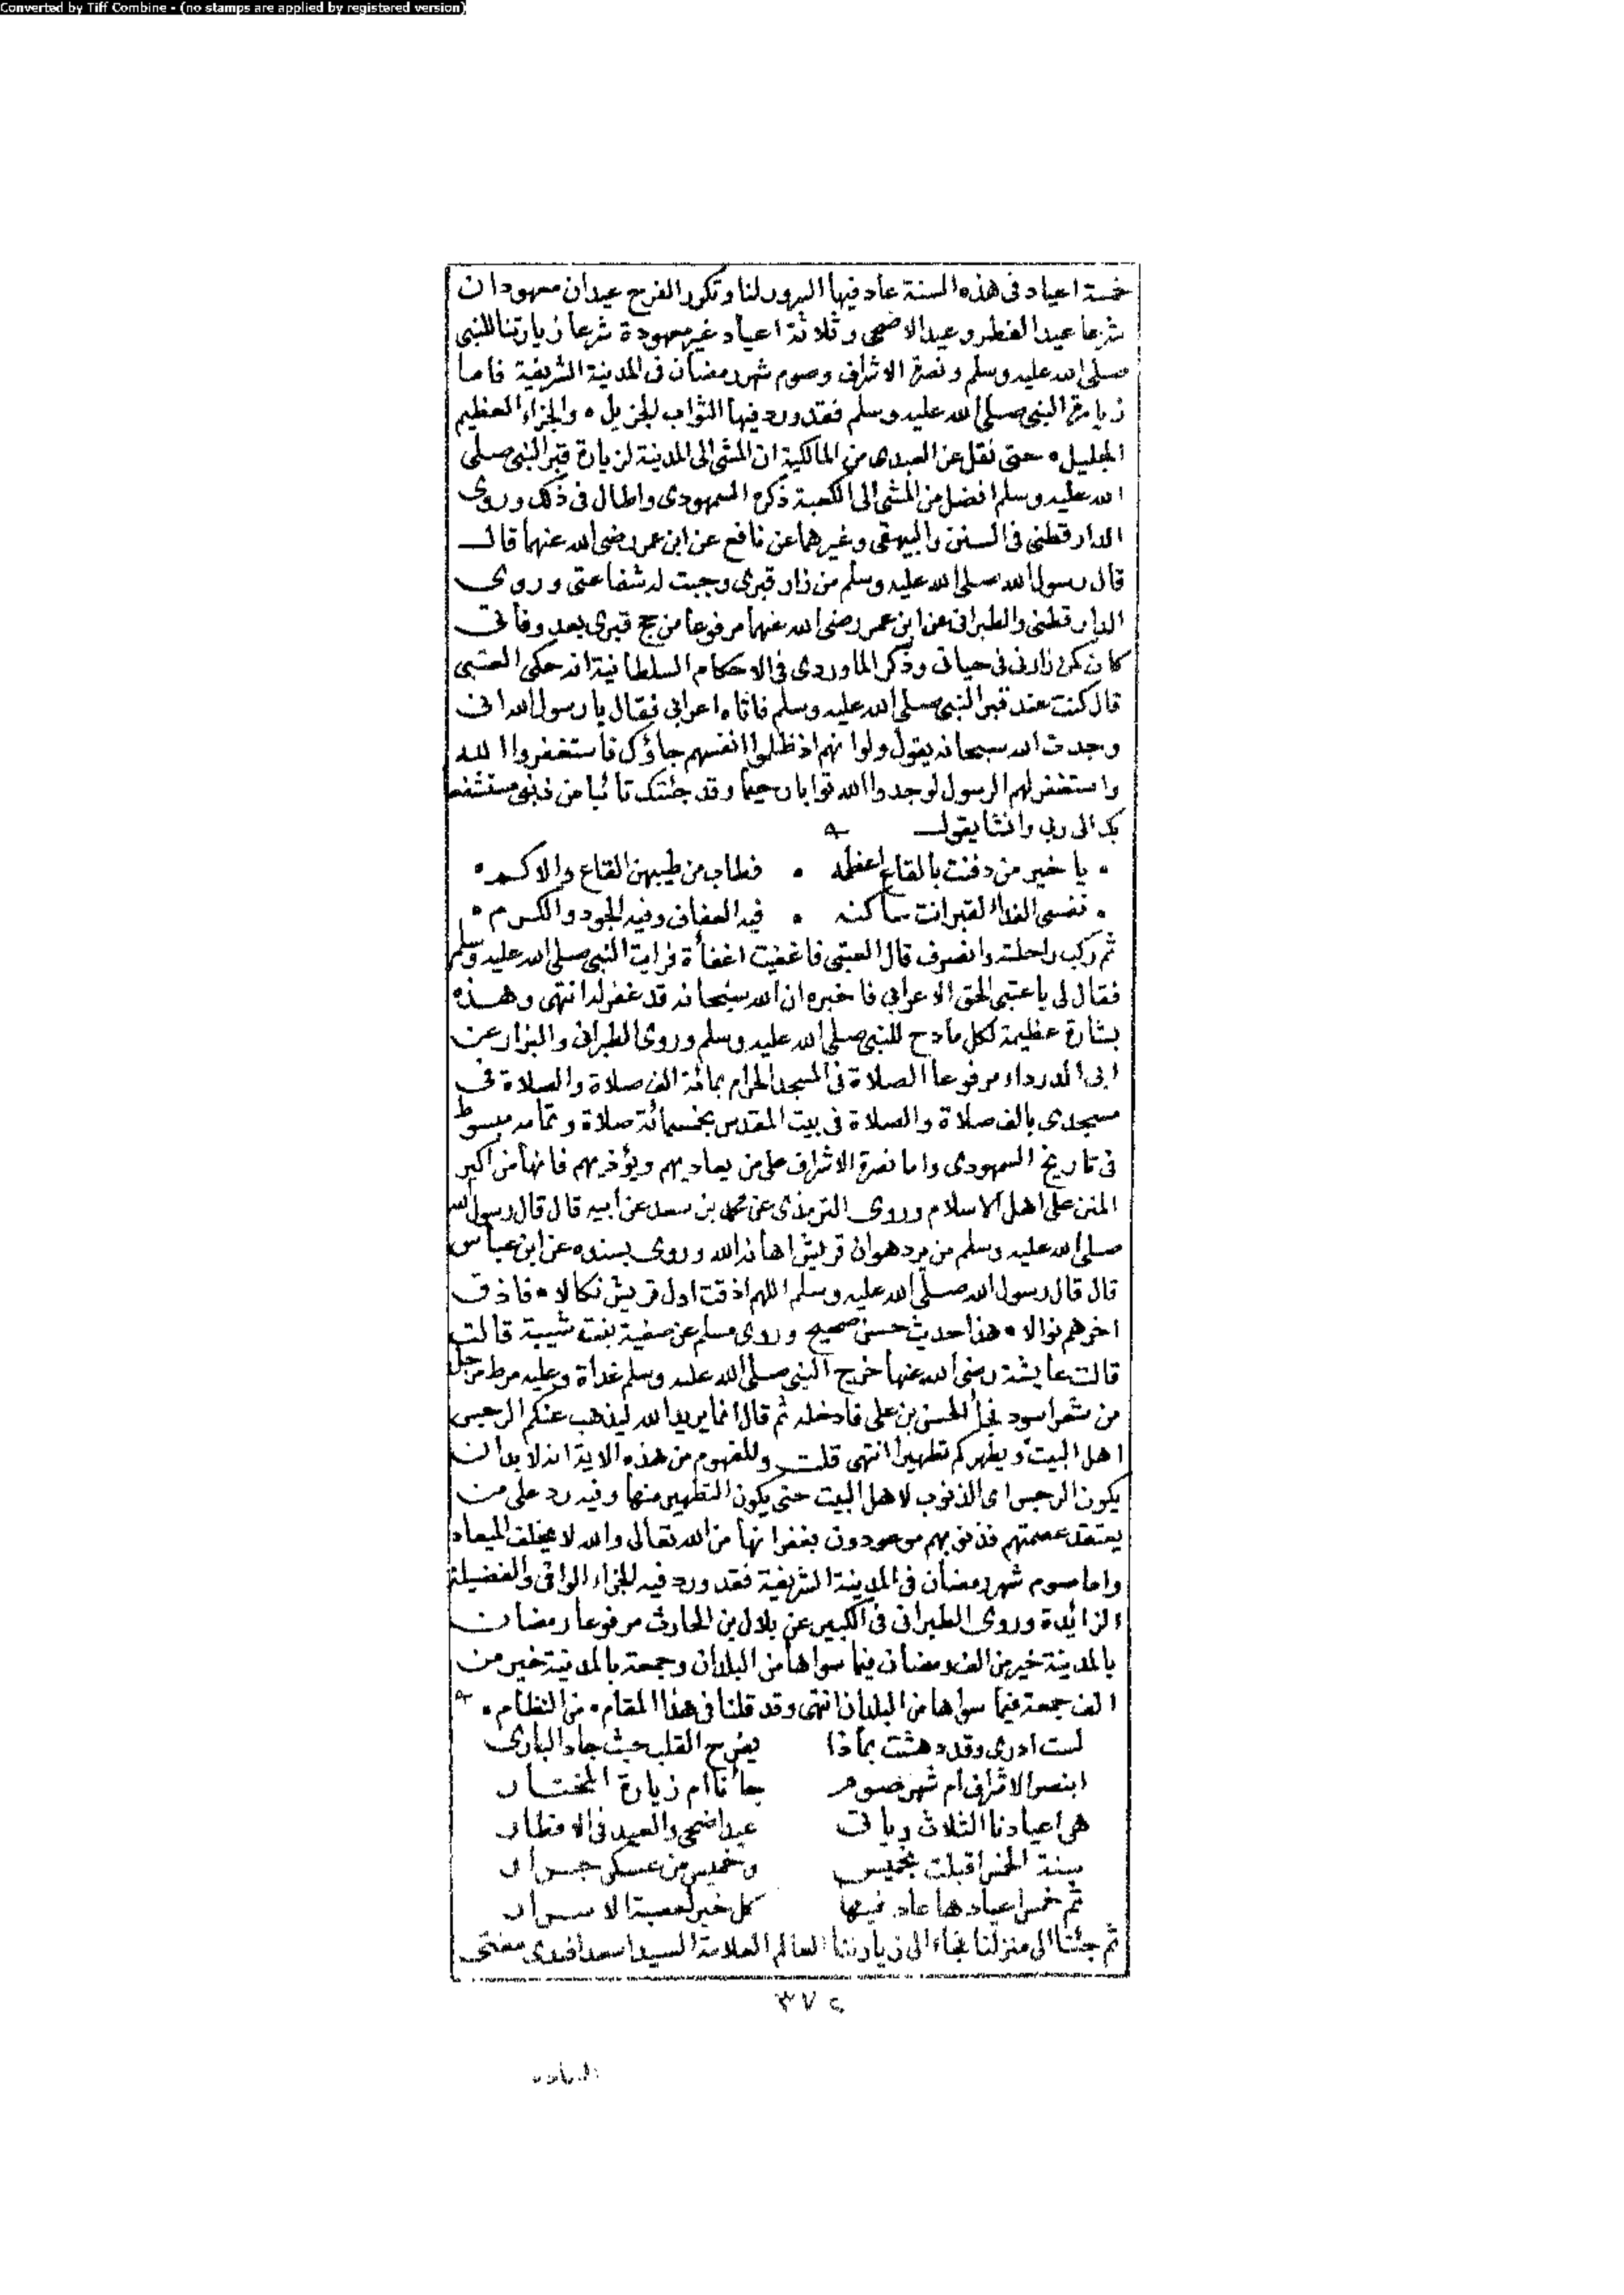 Converted by Tiff Combine - (no stamps are applied by registered version)
خمسة اعياد فى هذه السنة عاد فيها السرور لنا وتكرر الفرح عيدان معهودان
شرعا عيد الفطر وعيد الاضحى وثلاثة اعياد غير معهودة شرعا زيارتنا للنبى
صلى الله عليه وسلم ونصرة الاشراف وصوم شهر رمضان فى المدينة الشريفة فاما
زيارة النبى صلى الله عليه وسلم فقد ورد فيها الثواب الجزيل ٥ والجزاء العظيم
الجليل ٥ حتى نقل عن العبدى من المالكية ان المشى الى المدينة لزيارة قبر النبى صلى
الله عليه وسلم افضل من المشى الى الكعبة ذكره السمهودى واطال فى ذلك وروى
الدارقطنى فى السنن والبيهقى وغيرهما عن نافع عن ابن عمر رضى الله عنهما قال
قال رسول الله صلى الله عليه وسلم من زار قبرى وجبت له شفاعتى وروى
الدارقطنى والطبرانى عن ابن عمر رضى الله عنهما مرفوعا من حج قبرى بعد وفاتى
كان كمن زارنى فى حياتى وذكر الماوردى فى الاحكام السلطانية انه حكى العتبى
قال كنت عند قبر النبى صلى الله عليه وسلم فاتاه اعرابى فقال يا رسول الله انى
وجدت الله سبحانه يقول ولو انهم اذ ظلموا انفسهم جاؤك فاستغفروا الله
واستغفر لهم الرسول لوجدوا الله توابا رحيما وقد جئتك تائبا من ذنبى مستشفعا
بك الى ربى وانشا يقول
• يا خير من دفنت بالقاع اعظمه • فطاب من طيبهن القاع والاكم •
• نفسى الفداء لقبر انت ساكنه • فيه العفاف وفيه الجود والكرم •
ثم ركب راحلته وانصرف قال العتبى فاغفيت اغفأة فرايت النبى صلى الله عليه وسلم
فقال لى يا عتبى الحق الاعرابى فاخبره ان الله سبحانه قد غفر له انتهى وهذه
بشارة عظيمة لكل مادح للنبى صلى الله عليه وسلم وروى الطبرانى والبزار عن
ابى الدرداء مرفوعا الصلاة فى المسجد الحرام بمائة الف صلاة والصلاة فى
مسجدى بالف صلاة والصلاة فى بيت المقدس بخمسمائة صلاة وتمامه مبسوط
فى تاريخ السمهودى واما نصرة الاشراف على من يعاديهم ويؤذيهم فانها من اكبر
المنن على اهل الاسلام وروى الترمذى عن محمد بن سعد عن أبيه قال قال رسول الله
صلى الله عليه وسلم من يرد هوان قريش اهانه الله وروى بسنده عن ابن عباس
قال قال رسول الله صلى الله عليه وسلم اللهم اذقت اول قريش نكالا ٥ فاذق
اخرهم نوالا ٥ هذا حديث حسن صحيح وروى مسلم عن صفية بنت شيبة قالت
قالت عايشة رضى الله عنها خرج النبى صلى الله عليه وسلم غداة وعليه مرط مرجل
من شعر اسود فجأ الحسن بن على فادخله ثم قال انما يريد الله ليذهب عنكم الرجس
اهل البيت ويطهركم تطهيرا انتهى قلت والمفهوم من هذه الاية انه لا بد ان
يكون الرجس اى الذنوب لاهل البيت حتى يكون التطهير منها وفيه رد على من
يعتقد عصمتهم فذنوبهم موعودون بغفرانها من الله تعالى والله لا يخلف الميعاد
واما صوم شهر رمضان فى المدينة الشريفة فقد ورد فيه الجزاء الوافى والفضيلة
الزائدة وروى الطبرانى فى الكبير عن بلال بن الحارث مرفوعا رمضان
بالمدينة خير من الف رمضان فيما سواها من البلدان وجمعة بالمدينة خير من
الف جمعة فيما سواها من البلدان انتهى وقد قلنا فى هذا المقام ٥ من النظام ٥
لست ادرى وقد دهشت بماذا يفرح القلب حيث جاد البارى
ابنصر الاشراف ام شهر صوم جأنا ام زيارة المختار
هى اعيادنا الثلاث وباقى عيد اضحى والعيد فى الافطار
سنة الخمس اقبلت بخميس وخميس من عسكر جرار
ثم خمس اعيادها عاد فيها كل خير لعصبة الاسرار
ثم جئنا الى منزلنا فجاء الى زيارتنا العالم العلامة السيد اسعد افندى مفتى
٣٧٢